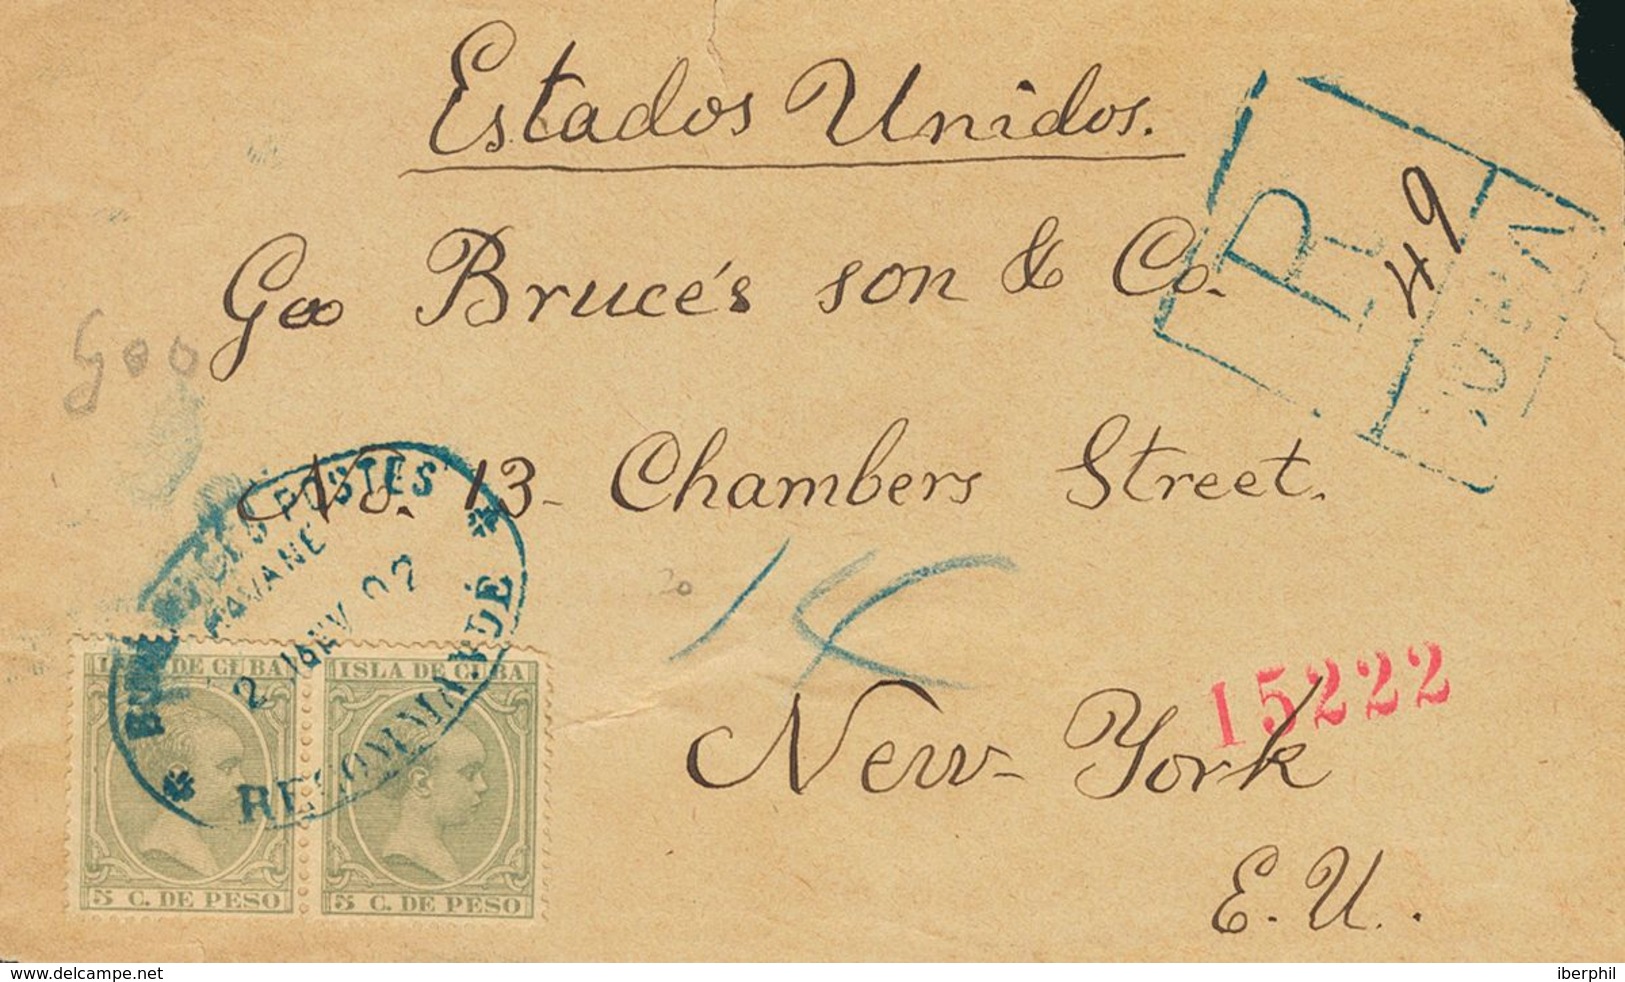 Estados Unidos.
R
49
Geo Bruce's son & Co.
Goo
No. 13- Chambers Street.
POSTES
HAVANE
2 JANV 97
RECOMMANDÉ
20
14
15222
New-York
E. U.
ISLA DE CUBA
5 C. DE PESO
ISLA DE CUBA
5 C. DE PESO
delcampe.net
iberphil